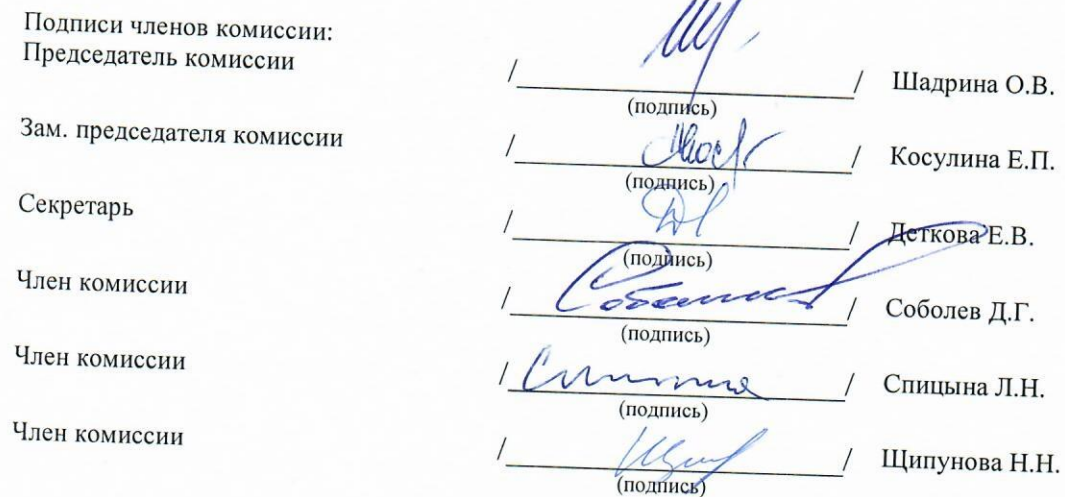 Подписи членов комиссии:
Председатель комиссии / / Шадрина О.В.
(подпись)
Зам. председателя комиссии / / Косулина Е.П.
(подпись)
Секретарь / / Деткова Е.В.
(подпись)
Член комиссии / / Соболев Д.Г.
(подпись)
Член комиссии / / Спицына Л.Н.
(подпись)
Член комиссии / / Щипунова Н.Н.
(подпись)